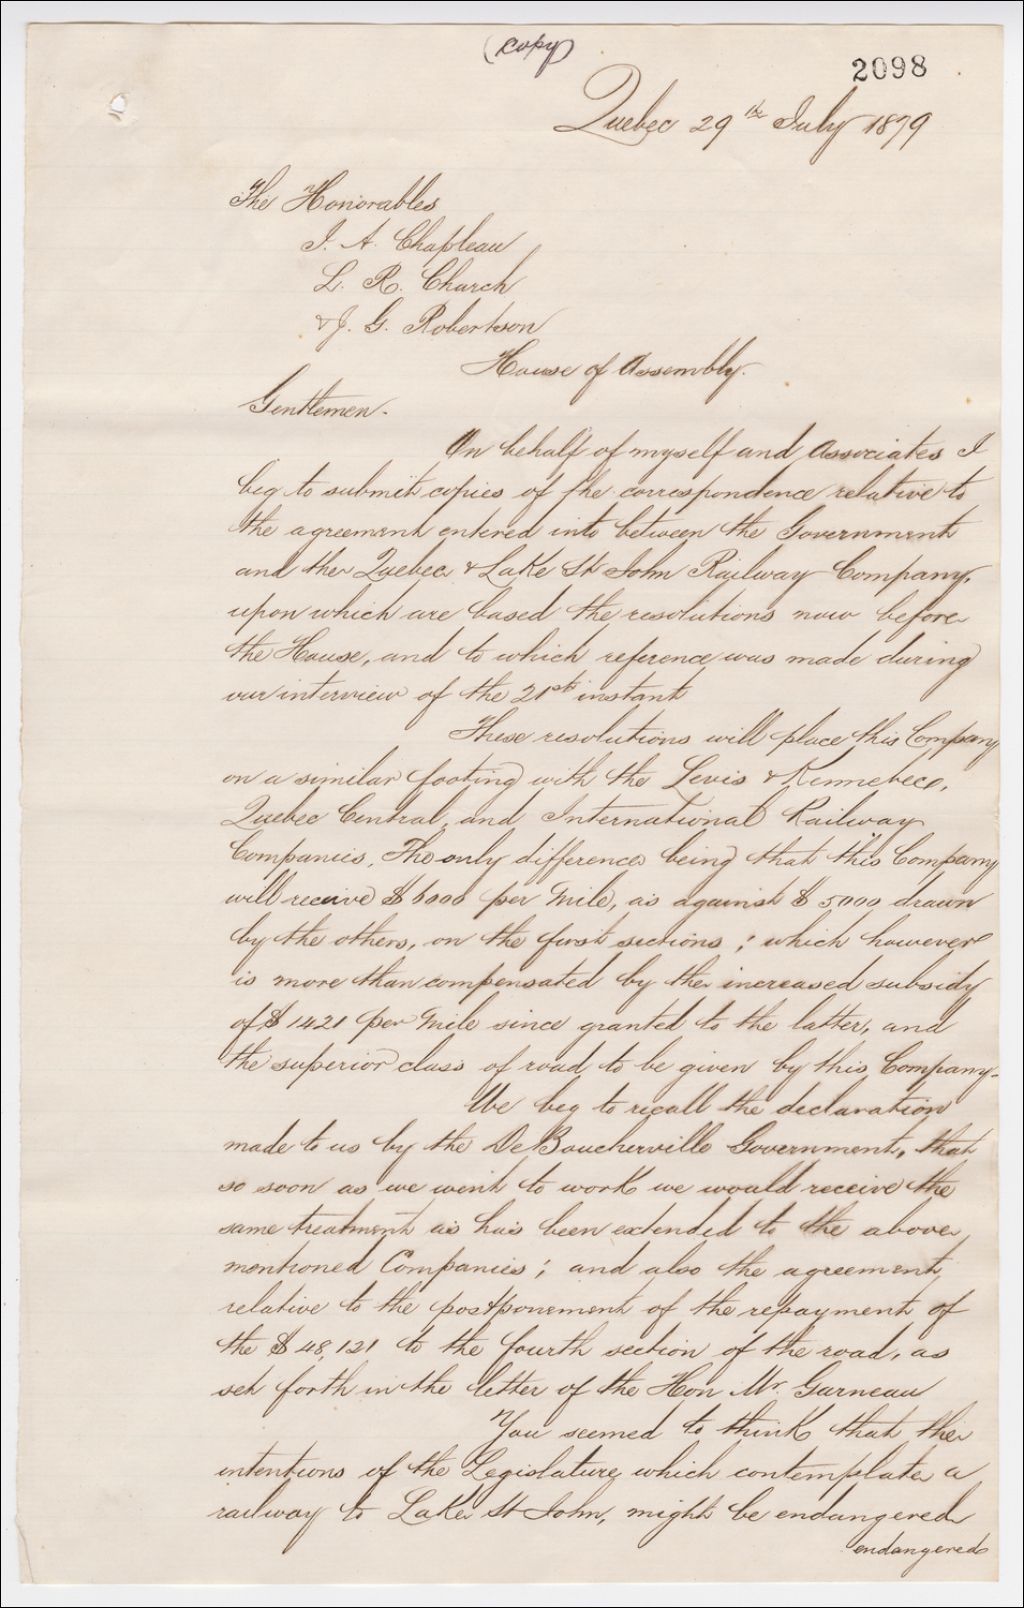 (copy)
2098
Quebec 29th July 1879
The Honorables
J. A. Chapleau
L. R. Church
& J. G. Robertson
House of Assembly.
Gentlemen.
On behalf of myself and Associates I
beg to submit copies of the correspondence relative to
the agreement entered into between the Government
and the Quebec & Lake St John Railway Company,
upon which are based the resolutions now before
the House, and to which reference was made during
our interview of the 21st instant
These resolutions will place this Company
on a similar footing with the Levis & Kennebec,
Quebec Central, and International Railway
Companies, The only difference being that this Company
will receive $6000 per Mile, as against $5000 drawn
by the others, on the first sections; which however
is more than compensated by the increased subsidy
of $1421 per Mile since granted to the latter, and
the superior class of road to be given by this Company.
We beg to recall the declaration
made to us by the De Boucherville Government, that
so soon as we went to work we would receive the
same treatment as has been extended to the above
mentioned Companies; and also the agreement
relative to the postponement of the repayment of
the $48,121 to the fourth section of the road, as
set forth in the letter of the Hon Mr. Garneau
You seemed to think that the
intentions of the Legislature, which contemplate a
railway to Lake St John, might be endangered
endangered